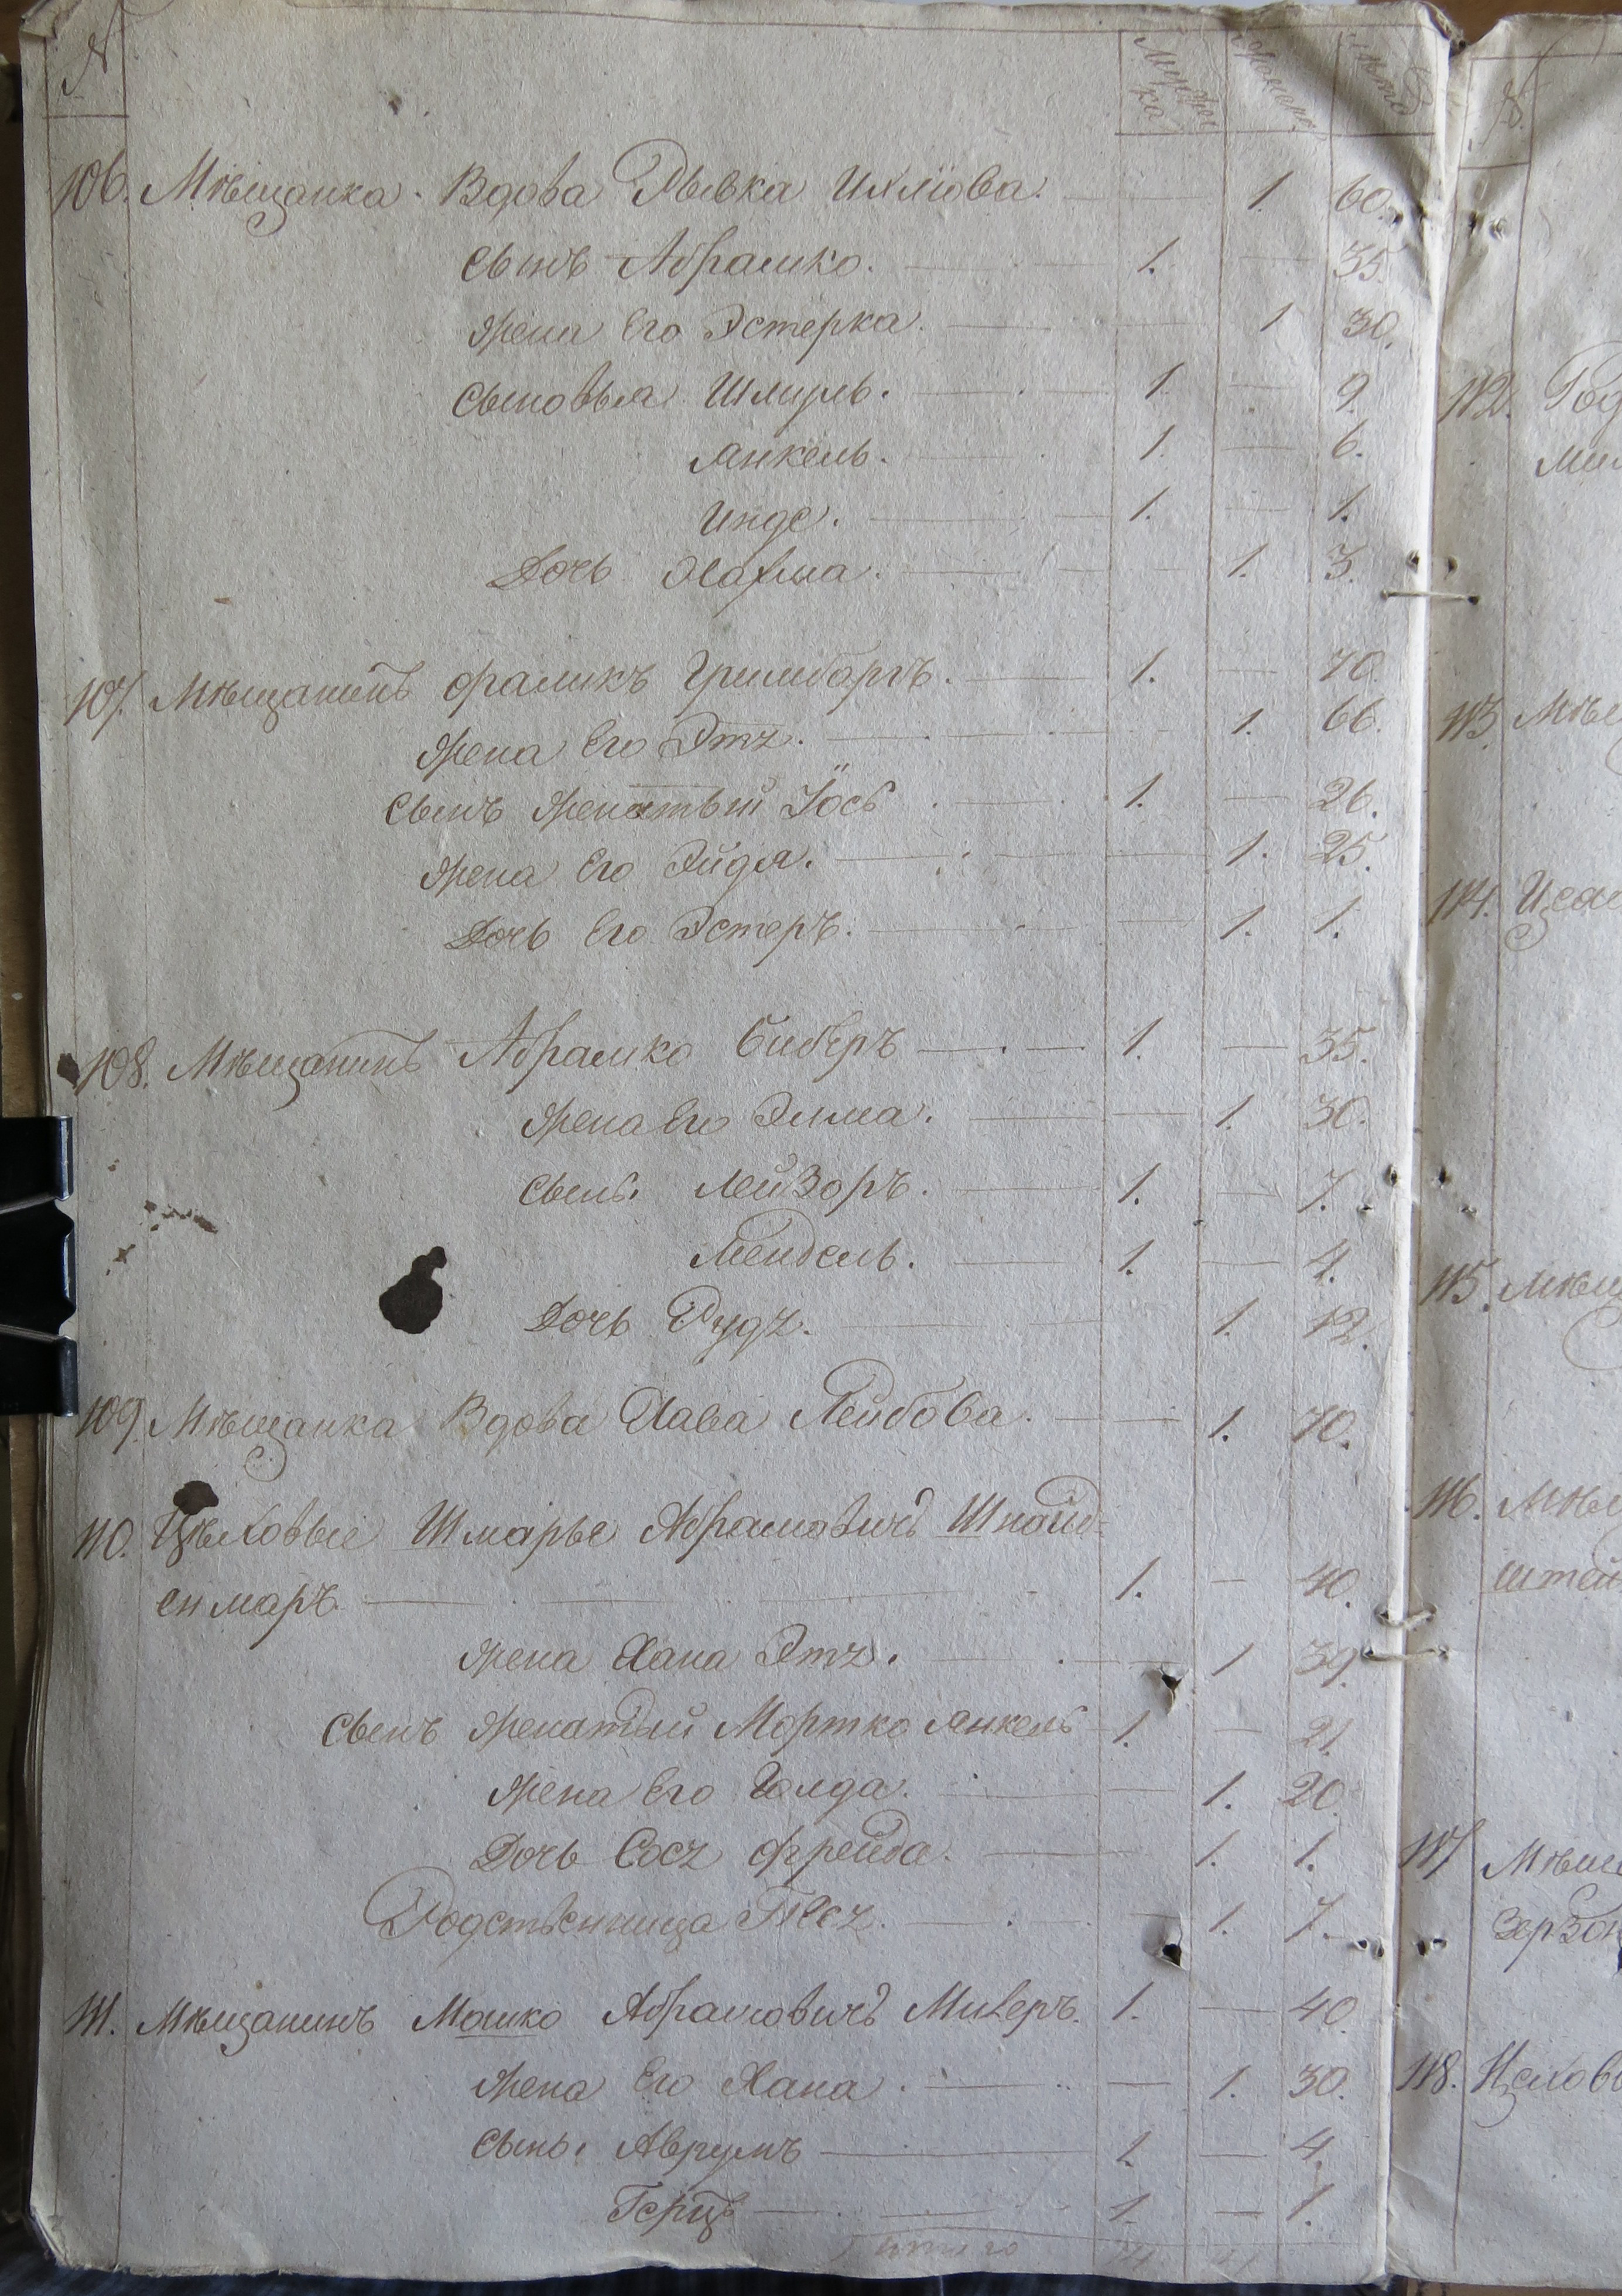 № Мужеска Женска Лѣта
106. Мѣщанка Вдова Рывка Ихлiова. 1. 60.
сынъ Абрамко. 1. 35.
Жена Его Эстерка. 1 30.
Сыновья Шмуль. 1. 9.
Янкель. 1. 6.
Инде. 1. 1.
Дочь 1. 3.
107. Мѣщанинъ Фраликъ Гринбаргъ. 1. 70.
Жена Его Этъ. 1. 66.
Сынъ Женатый Iось 1. 26.
Жена Его Эйдя. 1. 25.
Дочь Его Эстеръ. 1. 1.
108. Мѣщанинъ Абрамко Биберъ 1. 35.
Жена Его Элма. 1. 30.
Сынъ. Лейзоръ. 1. 7.
Мендель. 1. 4.
Дочь Рудъ. 1. 12.
109. Мѣщанка Вдова Хава Лейбова. 1. 70.
110. Цѣховые Шмарье Абрамовичъ Шнайд=
енмаръ 1. 40.
Жена Хана Этъ. 1 39.
Сынъ Женатый Мортко Янкель 1. 21.
Жена Его Голда. 1. 20.
Дочь Сосъ Фрейда. 1. 1.
Родственница Песъ. 1. 7.
111. Мѣщанинъ Мошко Абрамовичъ Милеръ. 1. 40.
Жена Его Хана. 1. 30.
Сынъ. Аврумъ 1. 4.
Герцъ 1. 1.
Итого
№.
112.
113.
114.
115.
116.
117
118.